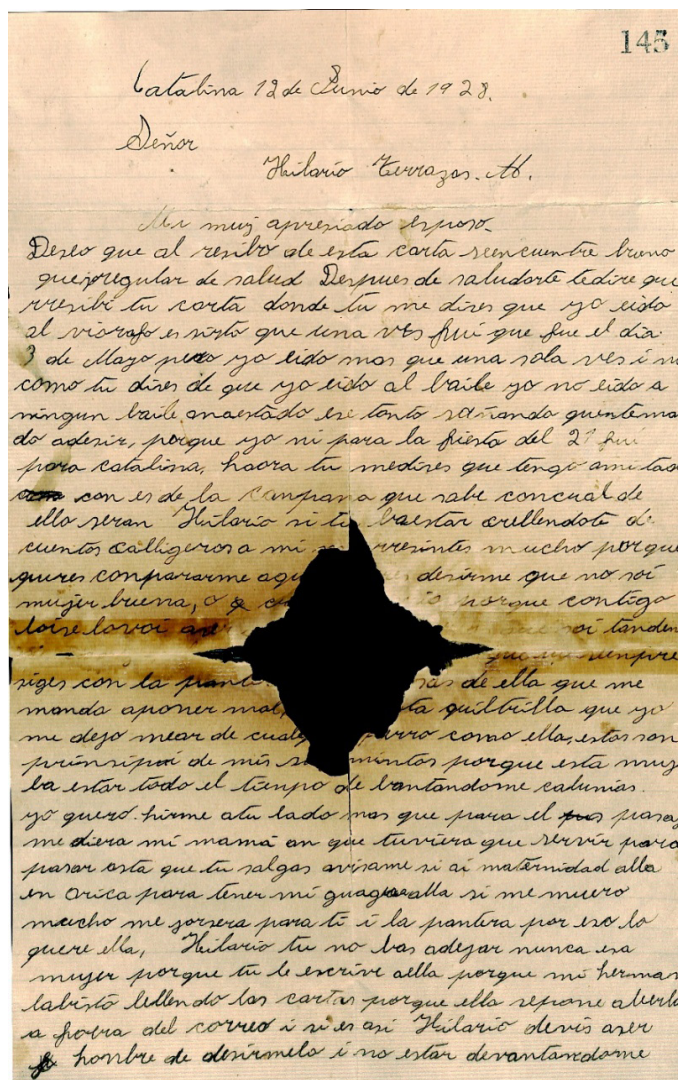 145
Catalina 12 de Junio de 1928.
Señor
Hilario Terrazas. M.
Mi muy apresiado esposo.
Deseo que al resibo de esta carta seencuentre bueno
que regular de salud Despues de saludarte tedire que
rresibi tu carta donde tu me dises que yo eido
al viorafo es sirto que una ves fui que fue el dia
3 de Mayo pero yo eido mas que una sola ves i no
como tu dises de que yo eido al baile yo no eido a
ningun baile anaestado ese tonto soñando quentema
do adesir, porque yo ni para la fiesta del 21 fui
para catalina, haora tu medises que tengo amistad
con es de la campana que sabe concual de
ello seran Hilario si tu baestar crellendote de
cuentos calligeros a mi rresintes mucho porque
queres conpararme desirme que no soi
mujer buena, o porque contigo
loise lovoi aser soi tanden
que tu sienpre
siges con la pante de ella que me
manda aponer mal, quiltrilla que yo
me dejo mear de como ella, estos son
prinsipai de mis porque esta muj
ba estar todo el tienpo de bantandome calunias.
yo quero hirme atu lado mas que para el pasaj
me diera mi mamá an que tuviera que servir para
pasar asta que tu salgas avisame si ai maternidad alla
en Arica para tener mi guagua alla si me muero
mucho me jor sera para ti i la pantera por eso lo
quere ella, Hilario tu no bas adejar nunca esa
mujer porque tu le escrive aella porque mi herman
labisto lellendo las cartas porque ella sepone aberla
a fora del correo i si es asi Hilario devis aser
hombre de desirmelo i no estar devantandome